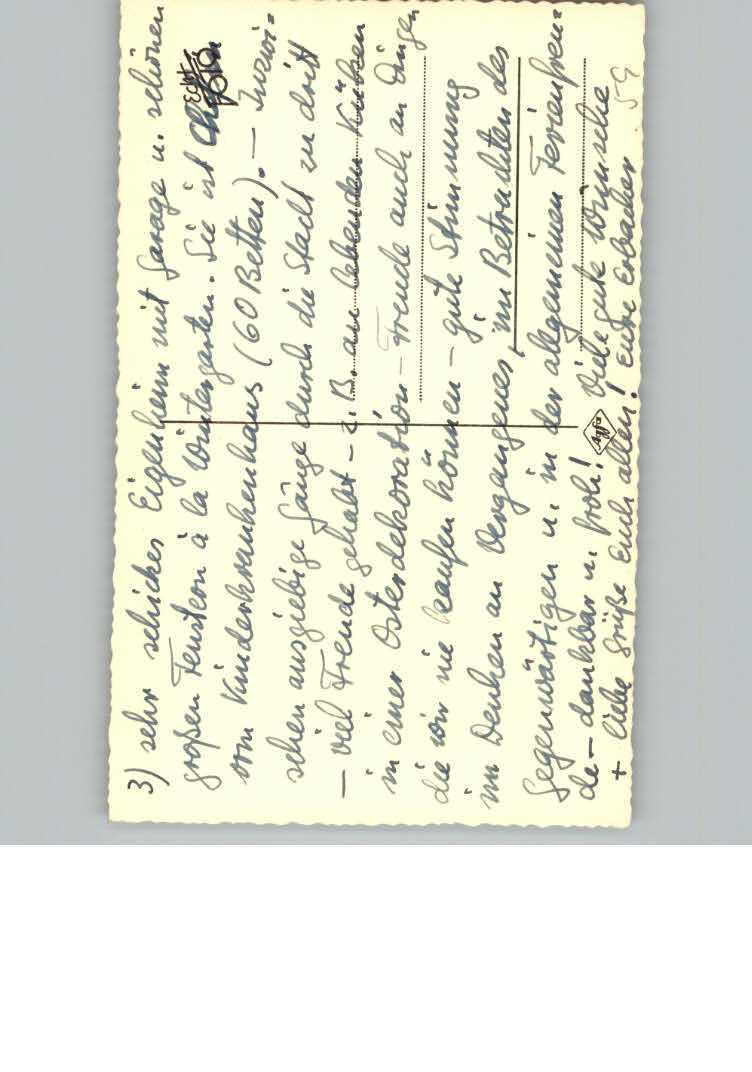 3) sehr schickes Eigenheim mit Garage u. schönen
großen Fenstern à la Wintergarten. Sie ist Chefin
vom Kinderkrankenhaus (60 Betten). — Inzwi-
schen ausgiebige Gänge durch die Stadt zu dritt
— viel Freude gehabt – z. B. an lebenden Küken
in einer Osterdekoration – Freude auch an Dingen
die wir nie kaufen können – gute Stimmung
im Denken an Vergangenes, im Betrachten des
Gegenwärtigen u. in der allgemeinen Ferienfreu-
de – dankbar u. froh! Viele gute Wünsche
+ liebe Grüße Euch allen! Eure Erbacher
59
Echt
Foto
Agfa